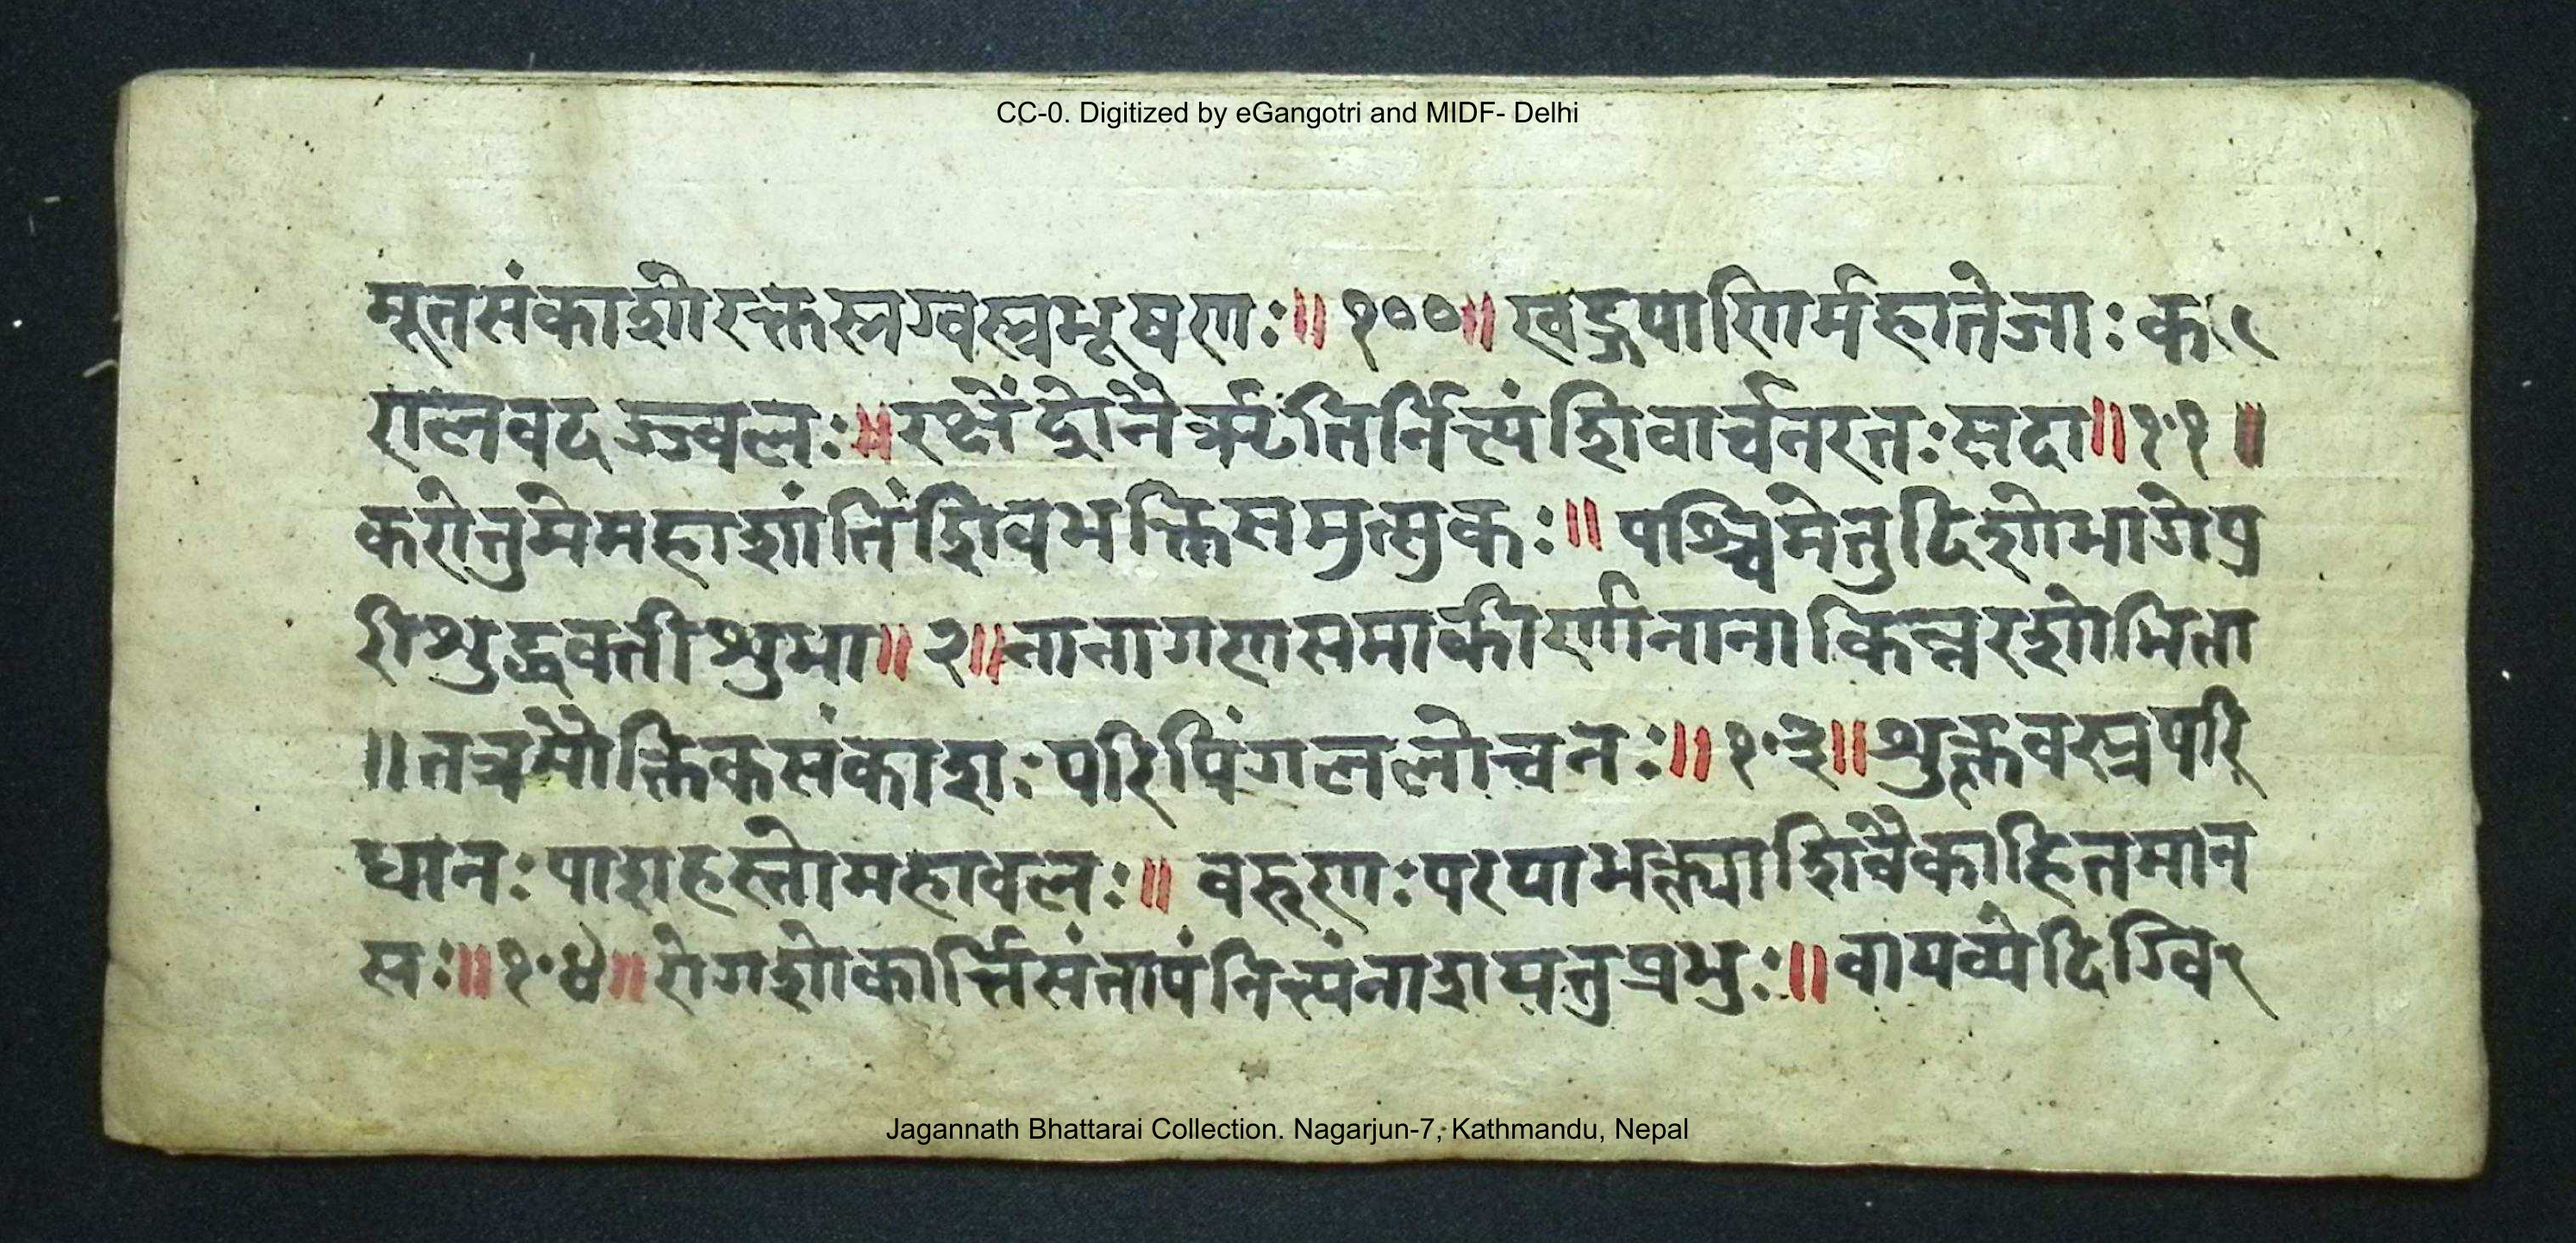 CC-0. Digitized by eGangotri and MIDF- Delhi
मूतसंकाशोरक्तस्रग्वस्त्रभूषणः॥१००॥खड्गपाणिर्महातेजाः क
रालवदज्ज्वलः॥रक्षेंद्रोनैर्ऋतिर्नित्यंशिवार्चनरतःसदा॥१॰१॥
करोतुमेमहाशांतिंशिवभक्तिसमुत्सुकः॥पश्चिमेतुदिशोभागेपु
रीशुद्धवतीशुभा॥२॥नानागणसमाकीर्णानानाकिन्नरशोभिता
॥तत्रमौक्तिकसंकाशःपरिपिंगललोचनः॥१॰३॥शुक्लवस्त्रपरि
धानःपाशहस्तोमहावलः॥वरुणःपरयाभक्त्याशिवैकाहितमान
सः॥१॰४॥रोगशोकार्त्तिसंतापंनित्यंनाशयतुप्रभुः॥वायव्येदिग्वि
Jagannath Bhattarai Collection. Nagarjun-7, Kathmandu, Nepal